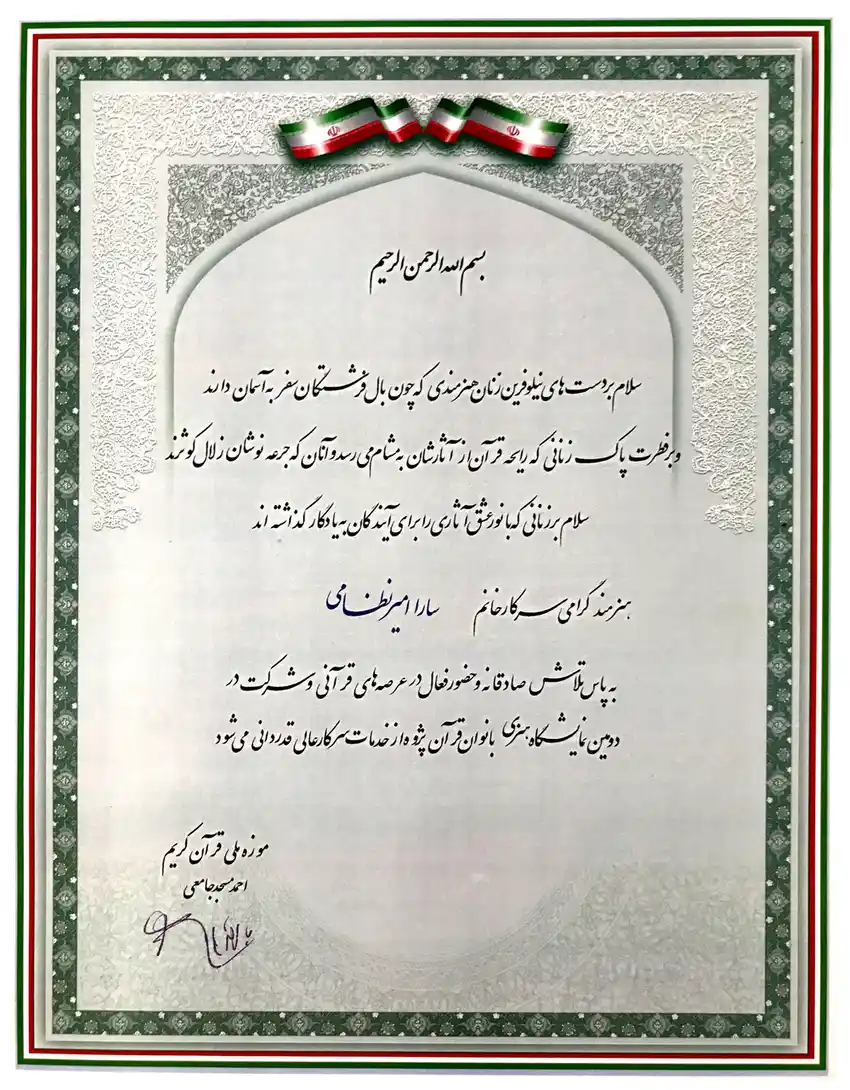 بسم الله الرحمن الرحیم
سلام بر دست های نیلوفرین زنان هنرمندی که چون بال فرشتگان سفر به آسمان دارند
و بر فطرت پاک زنانی که رایحه قرآن از آثارشان به مشام می رسد و آنان که جرعه نوشان زلال کوثرند
سلام بر زنانی که با نور عشق آثاری را برای آیندگان به یادگار گذاشته اند
هنرمند گرامی سرکار خانم سارا امیرنظامی
به پاس تلاش صادقانه و حضور فعال در عرصه های قرآنی و شرکت در
دومین نمایشگاه هنری بانوان قرآن پژوه از خدمات سرکار عالی قدردانی می شود
موزه ملی قرآن کریم
احمد مسجدجامعی